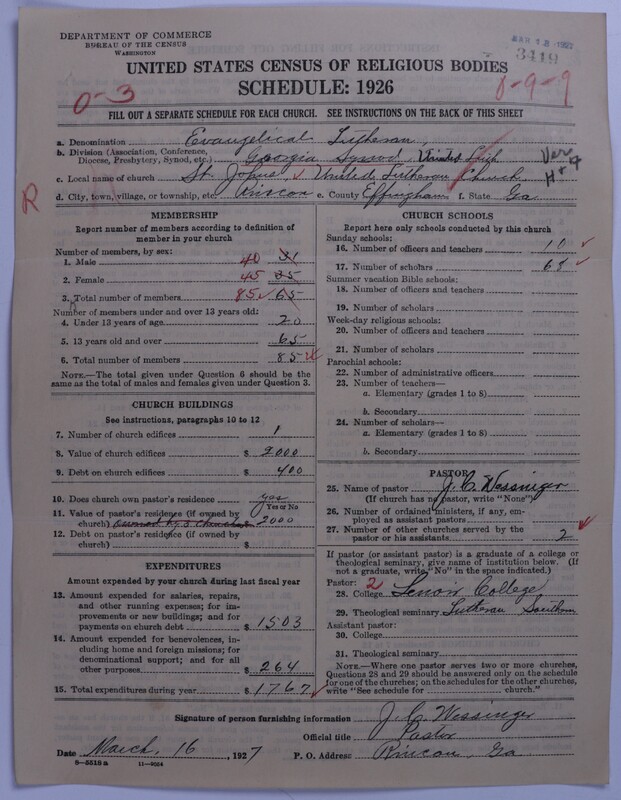 DEPARTMENT OF COMMERCE
BUREAU OF THE CENSUS
WASHINGTON
3419
UNITED STATES CENSUS OF RELIGIOUS BODIES
SCHEDULE: 1926
0-3
8-9-9
FILL OUT A SEPARATE SCHEDULE FOR EACH CHURCH. SEE INSTRUCTIONS ON THE BACK OF THIS SHEET
a. Denomination Evangelical Lutheran
b. Division (Association, Conference, Diocese, Presbytery, Synod, etc.) Georgia Synod, United Luth
Ver
H+9
c. Local name of church St. Johns United Lutheran Church
d. City, town, village, or township, etc. Rincon e. County Effingham f. State Ga.
R
MEMBERSHIP
Report number of members according to definition of member in your church
Number of members, by sex:
1. Male 40 31
2. Female 45 35
3. Total number of members 85 65
Number of members under and over 13 years old:
4. Under 13 years of age 20
5. 13 years old and over 65
6. Total number of members 85
NOTE.—The total given under Question 6 should be the same as the total of males and females given under Question 3.
CHURCH BUILDINGS
See instructions, paragraphs 10 to 12
7. Number of church edifices 1
8. Value of church edifices $ 9000
9. Debt on church edifices $ 400
10. Does church own pastor's residence yes
Yes or No
11. Value of pastor's residence (if owned by church) owned by 3 Churches 2000
12. Debt on pastor's residence (if owned by church) $
EXPENDITURES
Amount expended by your church during last fiscal year
13. Amount expended for salaries, repairs, and other running expenses; for improvements or new buildings; and for payments on church debt $ 1503
14. Amount expended for benevolences, including home and foreign missions; for denominational support; and for all other purposes $ 264
15. Total expenditures during year $ 1767
CHURCH SCHOOLS
Report here only schools conducted by this church
Sunday schools:
16. Number of officers and teachers 10
17. Number of scholars 65
Summer vacation Bible schools:
18. Number of officers and teachers
19. Number of scholars
Week-day religious schools:
20. Number of officers and teachers
21. Number of scholars
Parochial schools:
22. Number of administrative officers
23. Number of teachers—
a. Elementary (grades 1 to 8)
b. Secondary
24. Number of scholars—
a. Elementary (grades 1 to 8)
b. Secondary
PASTOR
25. Name of pastor J. C. Wessinger
(If church has no pastor, write "None")
26. Number of ordained ministers, if any, employed as assistant pastors
27. Number of other churches served by the pastor or his assistants 2
If pastor (or assistant pastor) is a graduate of a college or theological seminary, give name of institution below. (If not a graduate, write "No" in the space indicated.)
Pastor: 2
28. College Lenoir College
29. Theological seminary Lutheran Southern
Assistant pastor:
30. College
31. Theological seminary
NOTE.—Where one pastor serves two or more churches, Questions 28 and 29 should be answered only on the schedule for one of the churches; on the schedules for the other churches, write "See schedule for church."
Signature of person furnishing information J. C. Wessinger
Official title Pastor
Date March, 16, 1927 P. O. Address Rincon, Ga
8-5518a 11-9064